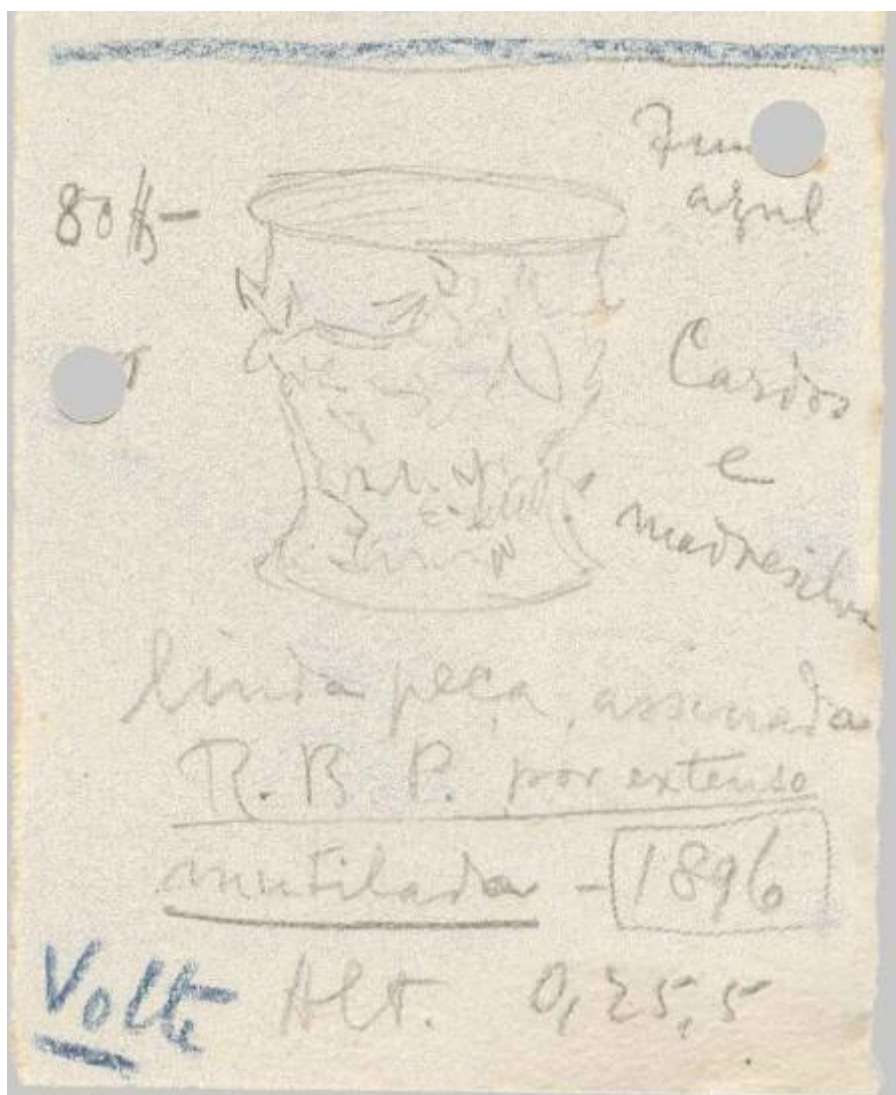 80$-
azul
Cardos
e
madresilva
linda peça, assinada
R. B. P. por extenso
mutilada - 1896
Volte Alt. 0,25,5